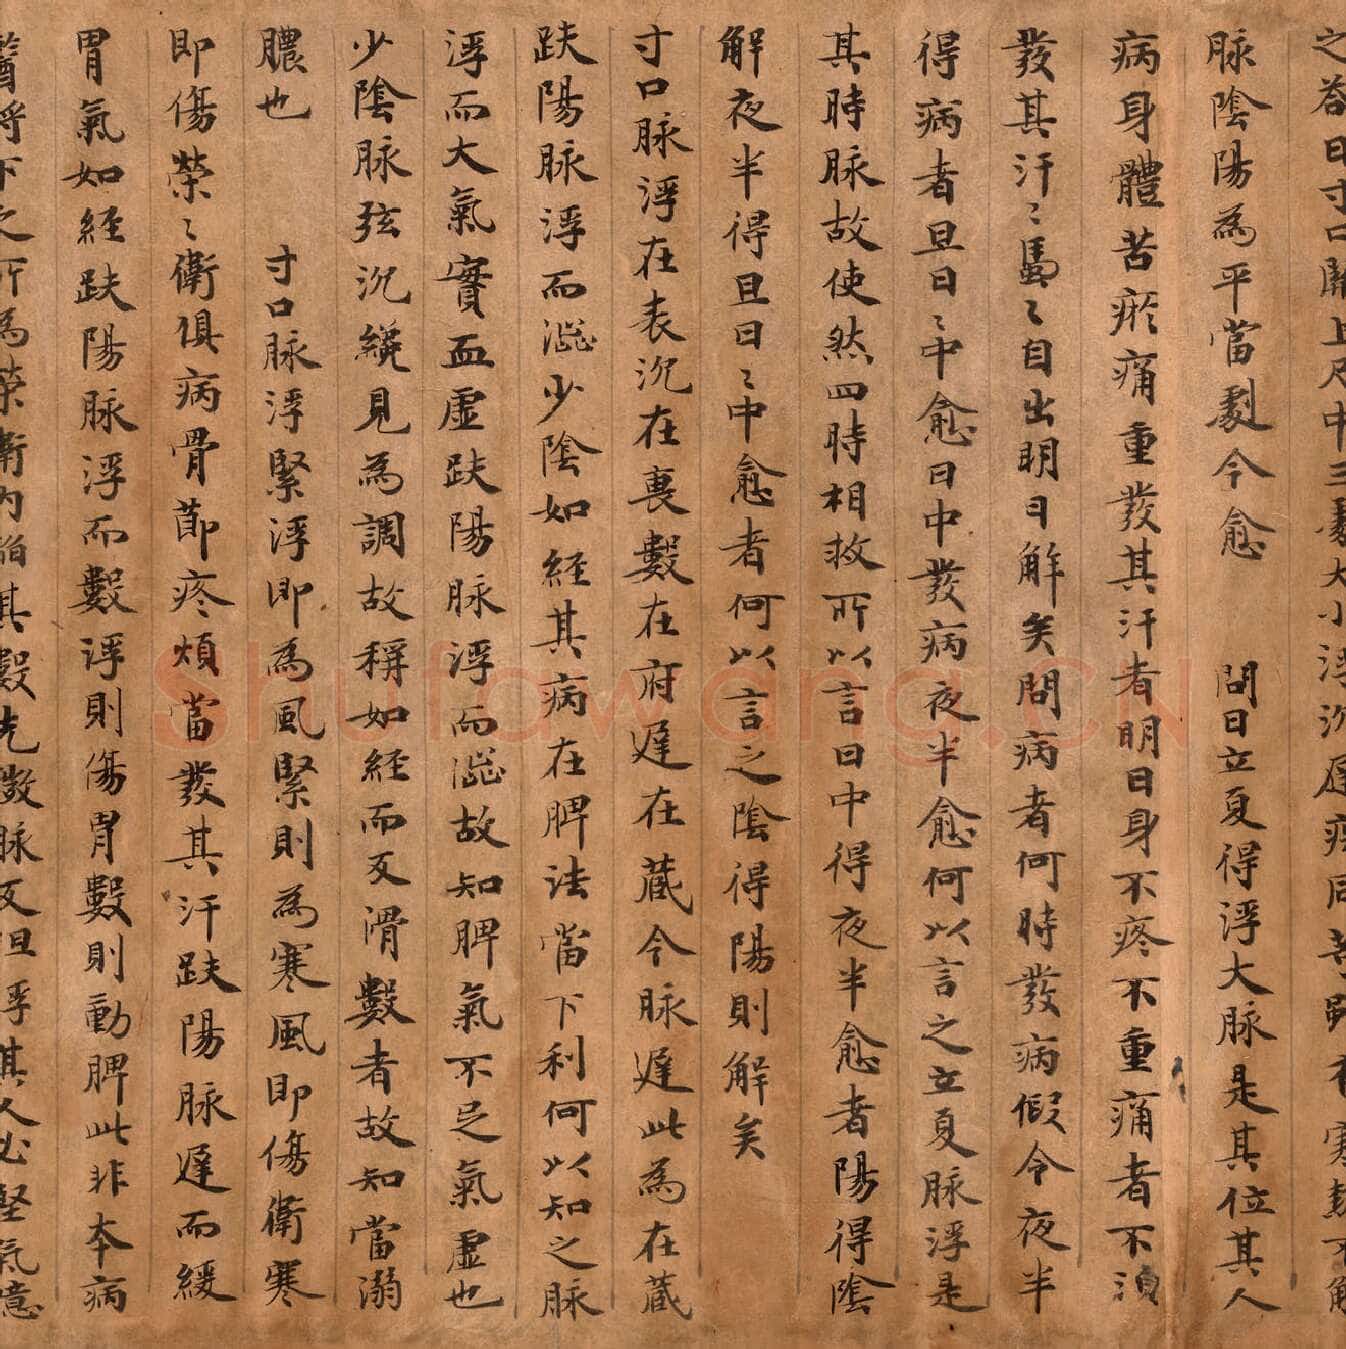 之答曰寸口關上尺中三處大小浮沉遲疾同等雖有寒熱不解
脉陰陽為平當劇今愈　問曰立夏得浮大脉是其位其人
病身體苦瘀痛重發其汗者明日身不疼不重痛者不須
發其汗〻馬〻自出明日解矣問病者何時發病假令夜半
得病者旦日〻中愈日中發病夜半愈何以言之立夏脉浮是
其時脉故使然四時相救所以言日中得夜半愈者陽得陰
解夜半得旦日〻中愈者何以言之陰得陽則解矣
寸口脉浮在表沉在裏數在府遲在藏今脉遲此為在藏
趺陽脉浮而澁少陰如經其病在脾法當下利何以知之脉
浮而大氣實血虛趺陽脉浮而澁故知脾氣不足氣虛也
少陰脉弦沉纔見為調故稱如經而反滑數者故知當溺
膿也　寸口脉浮緊浮即為風緊則為寒風即傷衛寒
即傷榮〻衛俱病骨節疼煩當發其汗趺陽脉遲而緩
胃氣如經趺陽脉浮而數浮則傷胃數則動脾此非本病
醫將下之所為榮衛內陷其數先微脉反但浮其人必堅氣噫
shufawang.CN